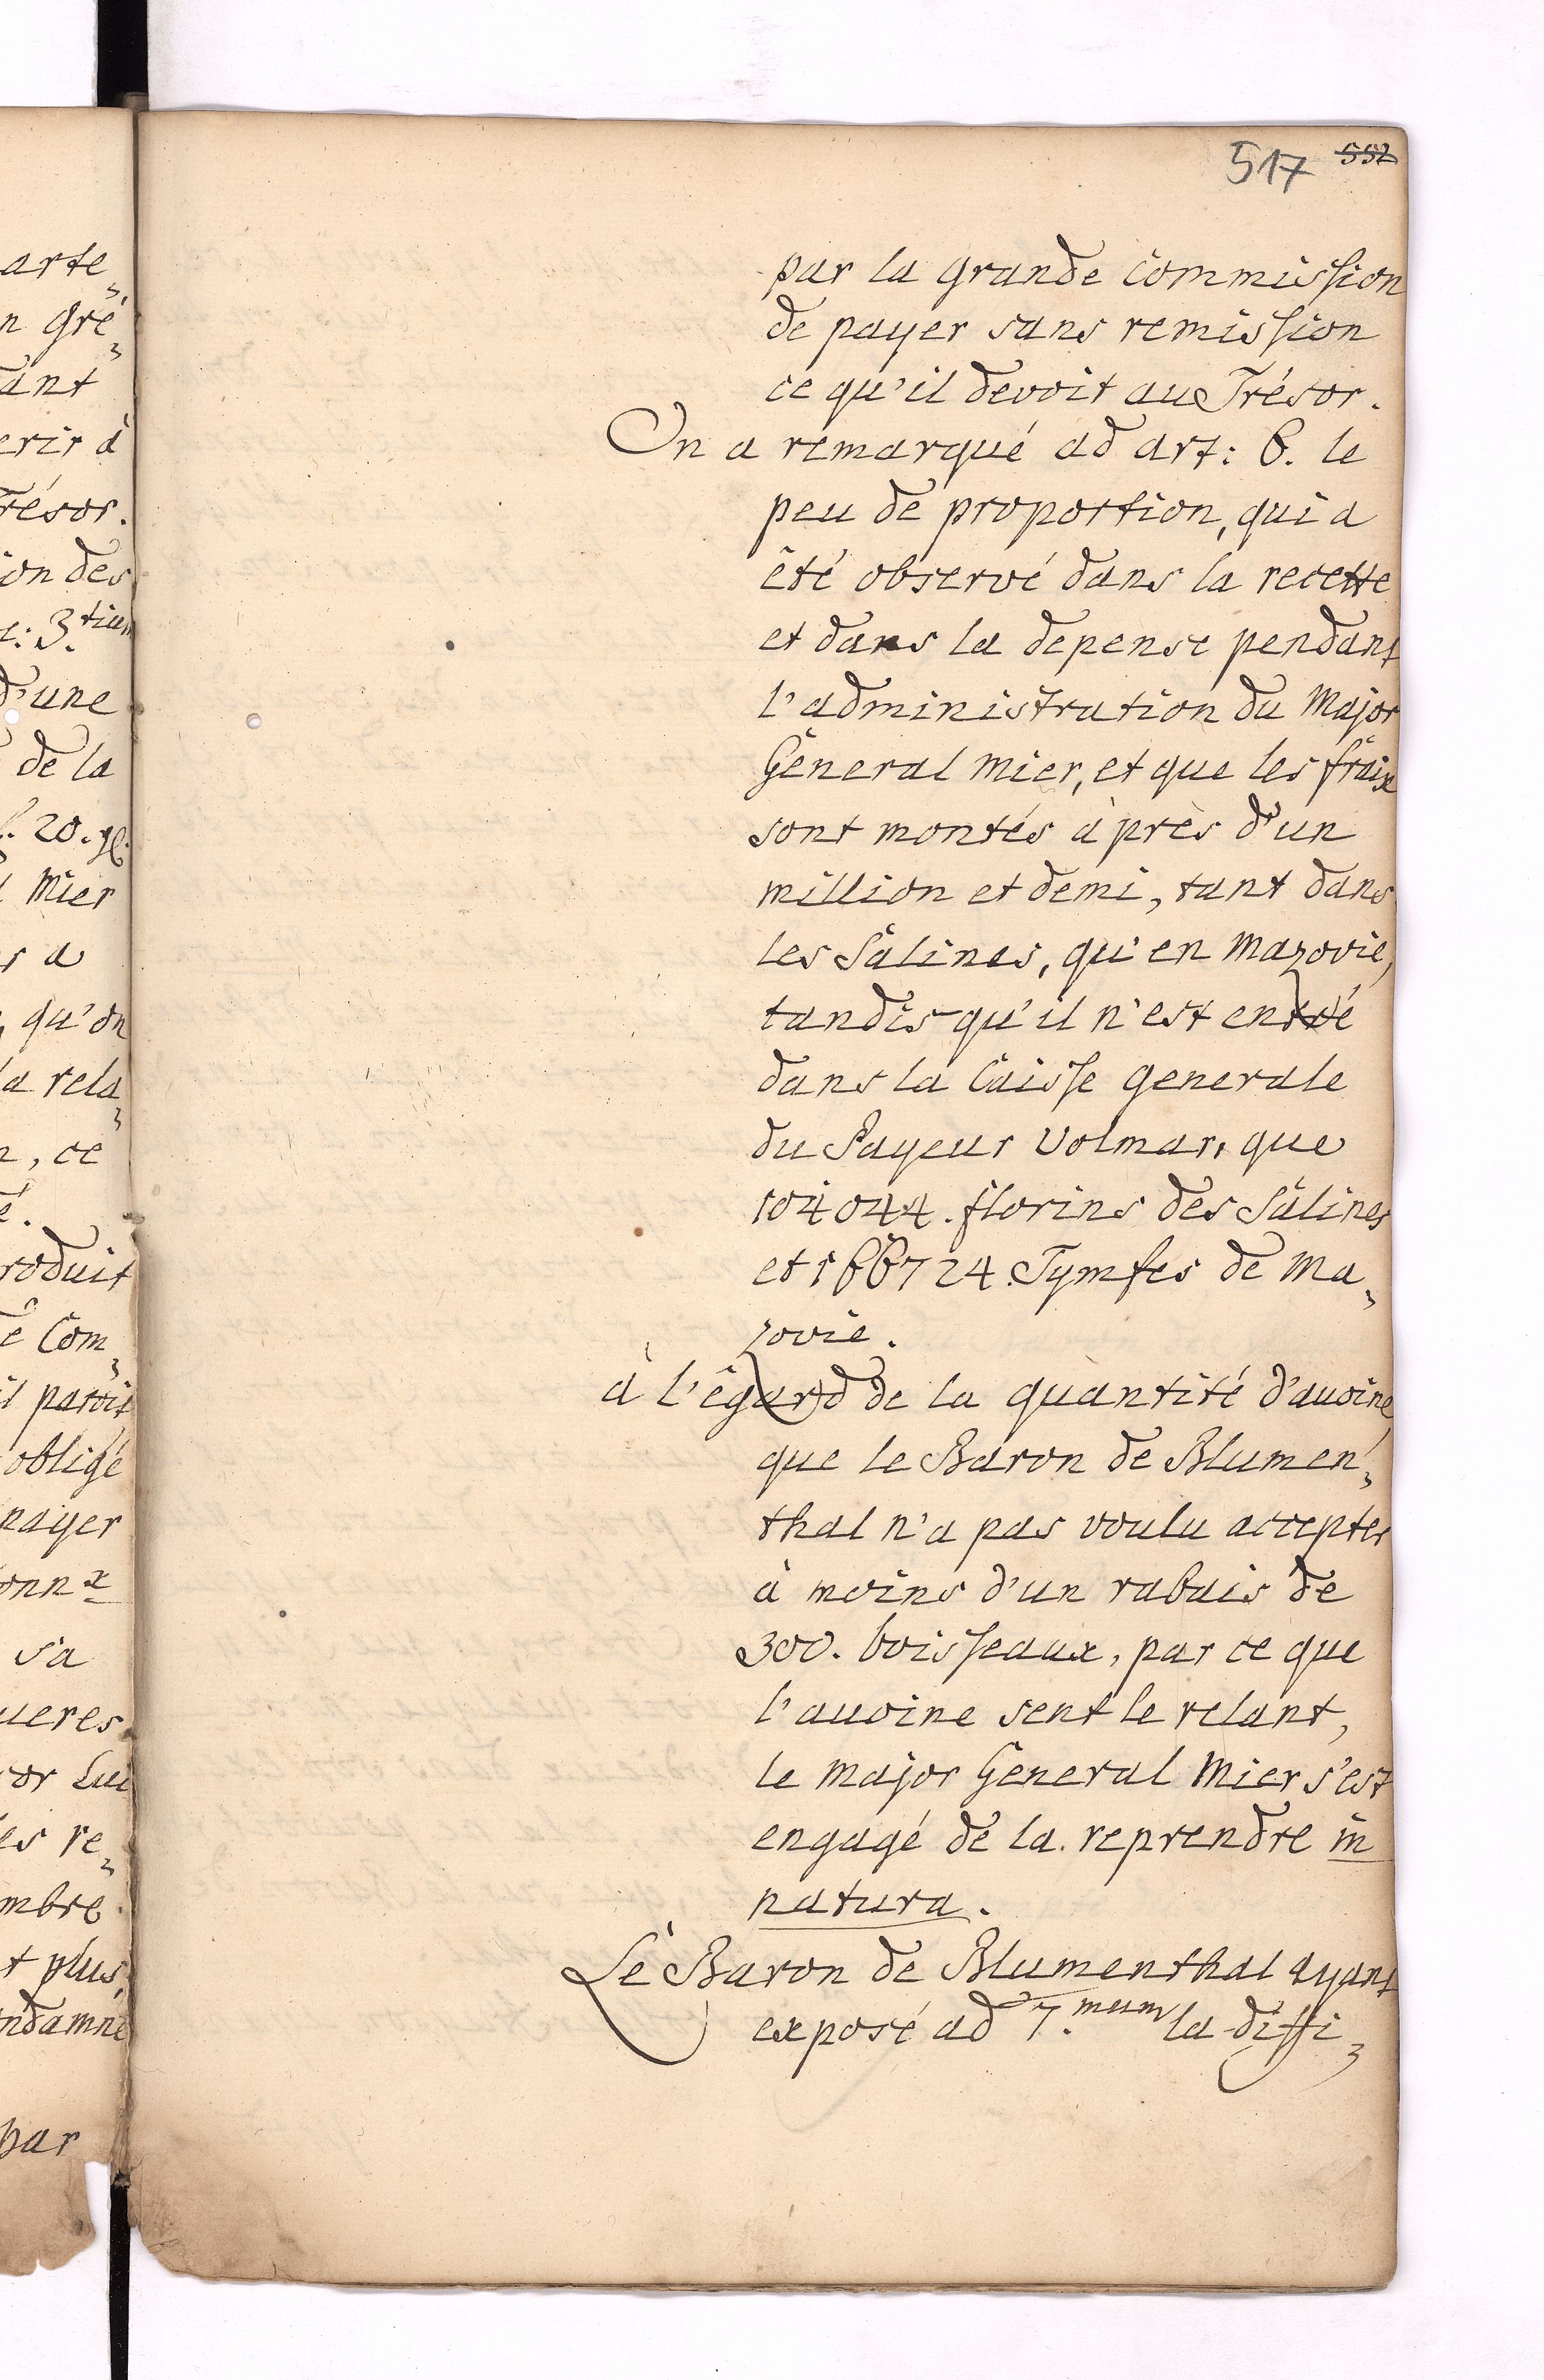 517 552
par la grande Commission
de payer sans remission
ce qu'il devoit au Trésor.
On a remarqué ad art: 6. le
peu de proportion, qui a
êté observé dans la recette
et dans la depense pendant
l'administration du Major
General Mier, et que les fraix
sont montés à près d'un
million et demi, tant dans
les Salines, qu'en Mazovie,
tandis qu'il n'est entré
dans la Caisse generale
du Payeur Volmar, que
104044. florins des Salines
et 166724. Tymfes de Ma„
zovie.
à l'êgard de la quantité d'avoine
que le Baron de Blumen„
thal n'a pas voulu accepter
à moins d'un rabais de
300. boisseaux, par ce que
l'avoine sent le relant,
le Major General Mier s'est
engagé de la reprendre in
natura.
Le Baron de Blumenthal ayant
exposé ad 7.mum la diffi„
arte„
n Gré„
ant
erir à
résor.
ion des
: 3.tium
d'une
de la
20.
Mier
a
, qu'on
a rela„
, ce
é.
roduit
e Com„
il paroit
obligé
payer
onn
sa
ueres
or Lui
es re„
mbre
t plus,
ndamné
par